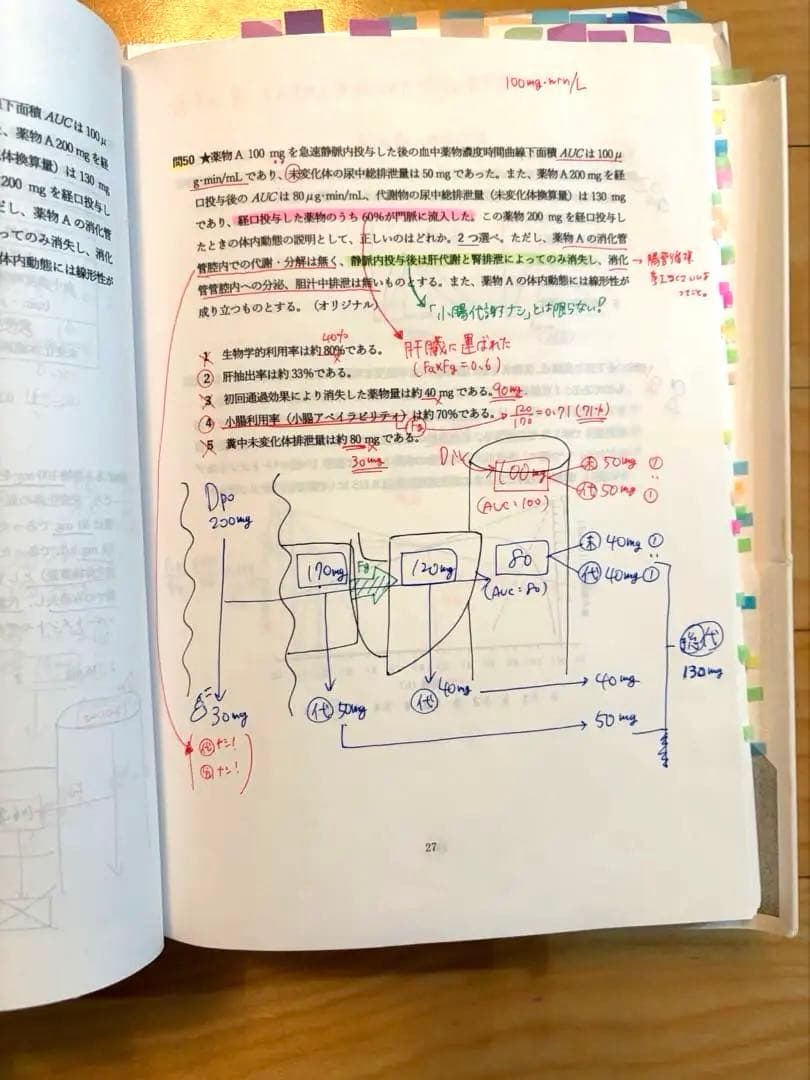 下面積 AUC は 100 μ
、薬物A 200 mg を経
体換算量）は 130 mg
200 mg を経口投与し
だし、薬物 A の消化管
ってのみ消失し、消化
体内動態には線形性が
100mg・min/L
問50 ★薬物 A 100 mg を急速静脈内投与した後の血中薬物濃度時間曲線下面積 AUC は 100 μ
g·min/mL であり、未変化体の尿中総排泄量は 50 mg であった。また、薬物 A 200 mg を経
口投与後の AUC は 80 μg·min/mL、代謝物の尿中総排泄量（未変化体換算量）は 130 mg
であり、経口投与した薬物のうち 60%が門脈に流入した。この薬物 200 mg を経口投与し
たときの体内動態の説明として、正しいのはどれか。2 つ選べ。ただし、薬物 A の消化管
管腔内での代謝・分解は無く、静脈内投与後は肝代謝と腎排泄によってのみ消失し、消化
管管腔内への分泌、胆汁中排泄は無いものとする。また、薬物 A の体内動態には線形性が
成り立つものとする。（オリジナル）
腸管循環
「小腸代謝ナシ」とは限らない!
40%
1 生物学的利用率は約 80%である。
肝臓に運ばれた
(Fa×Fg=0.6)
2 肝抽出率は約 33%である。
3 初回通過効果により消失した薬物量は約 40 mg である。 90mg
4 小腸利用率（小腸アベイラビリティ）は約 70%である。 120/170=0.71(71%)
(Fg)
5 糞中未変化体排泄量は約 80 mg である。
30mg
Div 100mg
(AUC=100)
未 50mg
代 50mg
Dpo
200mg
170mg
Fg
120mg
80
(AUC=80)
未 40mg
代 40mg
総代
130mg
30mg
代 50mg
代 40mg
40mg
50mg
代ナシ!
分ナシ!
27